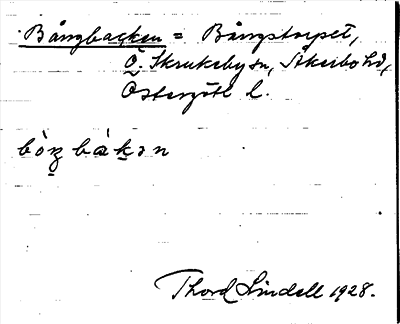 Bångbacken = Bångstorpet,
Ö. Skrukeby sn, Åkerbo hd,
Östergötl l.
bò̀ŋ bàkən
Thord Lindell 1928.